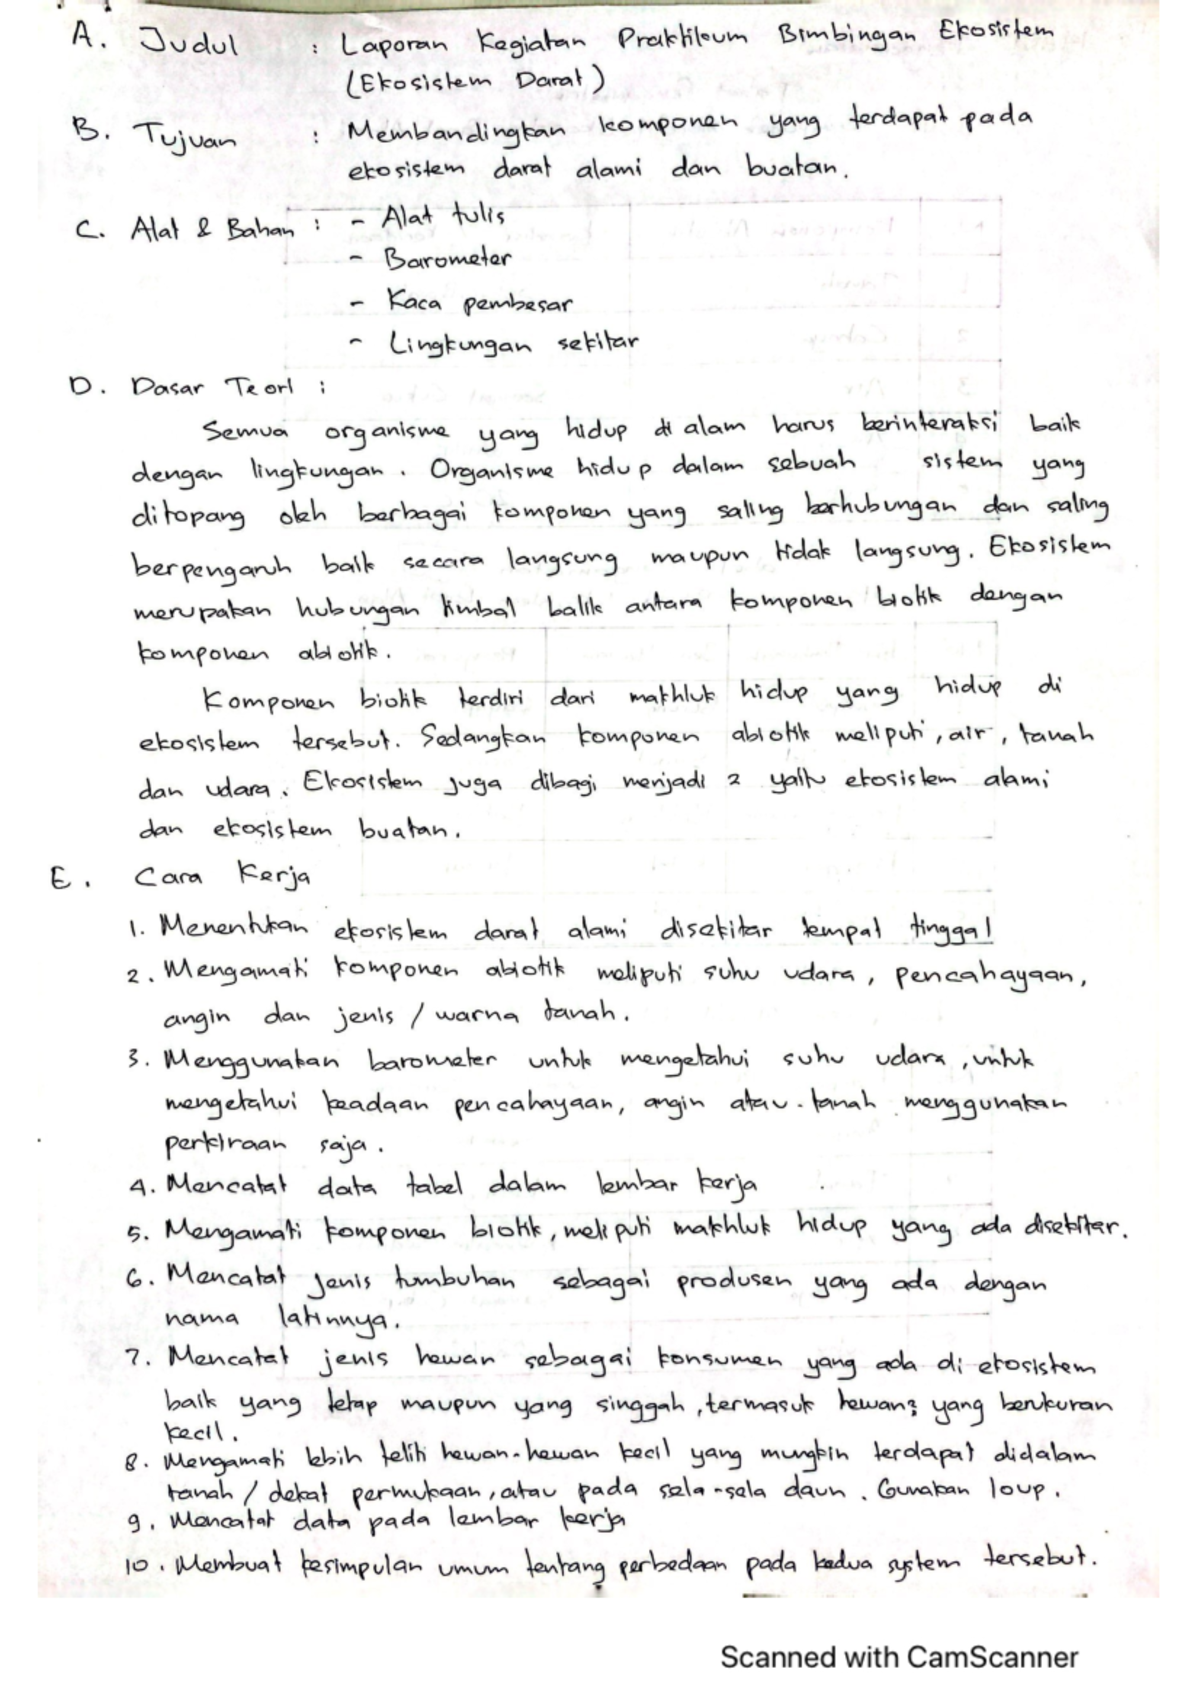 A. Judul : Laporan Kegiatan Praktikum Bimbingan Ekosistem
(Ekosistem Darat)
B. Tujuan : Membandingkan komponen yang terdapat pada
ekosistem darat alami dan buatan.
C. Alat & Bahan : - Alat tulis
- Barometer
- Kaca pembesar
- Lingkungan sekitar
D. Dasar Teori :
Semua organisme yang hidup di alam harus berinteraksi baik
dengan lingkungan. Organisme hidup dalam sebuah sistem yang
ditopang oleh berbagai komponen yang saling berhubungan dan saling
berpengaruh baik secara langsung maupun tidak langsung. Ekosistem
merupakan hubungan timbal balik antara komponen biotik dengan
komponen abiotik.
Komponen biotik terdiri dari makhluk hidup yang hidup di
ekosistem tersebut. Sedangkan komponen abiotik meliputi, air, tanah
dan udara. Ekosistem juga dibagi menjadi 2 yaitu ekosistem alami
dan ekosistem buatan.
E. Cara Kerja
1. Menentukan ekosistem darat alami disekitar tempat tinggal
2. Mengamati komponen abiotik meliputi suhu udara, pencahayaan,
angin dan jenis / warna tanah.
3. Menggunakan barometer untuk mengetahui suhu udara, untuk
mengetahui keadaan pencahayaan, angin atau tanah menggunakan
perkiraan saja.
4. Mencatat data tabel dalam lembar kerja
5. Mengamati komponen biotik, meliputi makhluk hidup yang ada disekitar.
6. Mencatat jenis tumbuhan sebagai produsen yang ada dengan
nama latinnya.
7. Mencatat jenis hewan sebagai konsumen yang ada di ekosistem
baik yang tetap maupun yang singgah, termasuk hewan2 yang berukuran
kecil.
8. Mengamati lebih teliti hewan-hewan kecil yang mungkin terdapat didalam
tanah / dekat permukaan, atau pada sela-sela daun. Gunakan loup.
9. Mencatat data pada lembar kerja
10. Membuat kesimpulan umum tentang perbedaan pada kedua system tersebut.
Scanned with CamScanner